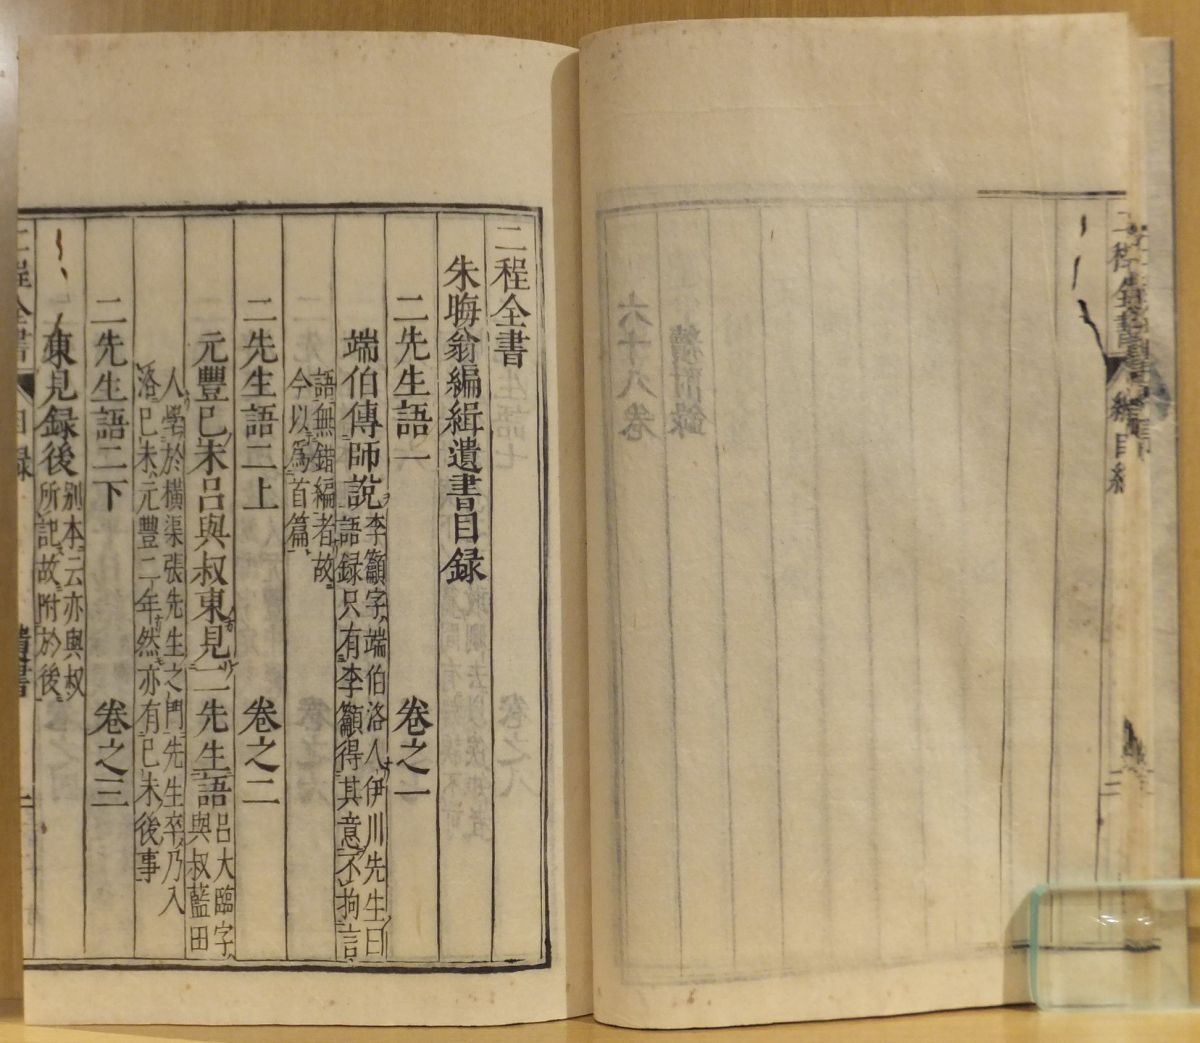 二程全書
朱晦翁編緝遺書目録
二先生語一　卷之一
端伯傳師説
李籲字端伯洛人伊川先生曰
語録只有李籲得其意不拘言
語無錯編者故
今以爲首篇
二先生語二上　卷之二
元豐己未呂與叔東見二先生語
呂大臨字
與叔藍田
人學於橫渠張先生之門先生卒乃入
洛己未元豐二年然亦有己未後事
二先生語二下　卷之三
東見録後
別本云亦與叔
所記故附於後
二程全書
目録
遺書
一